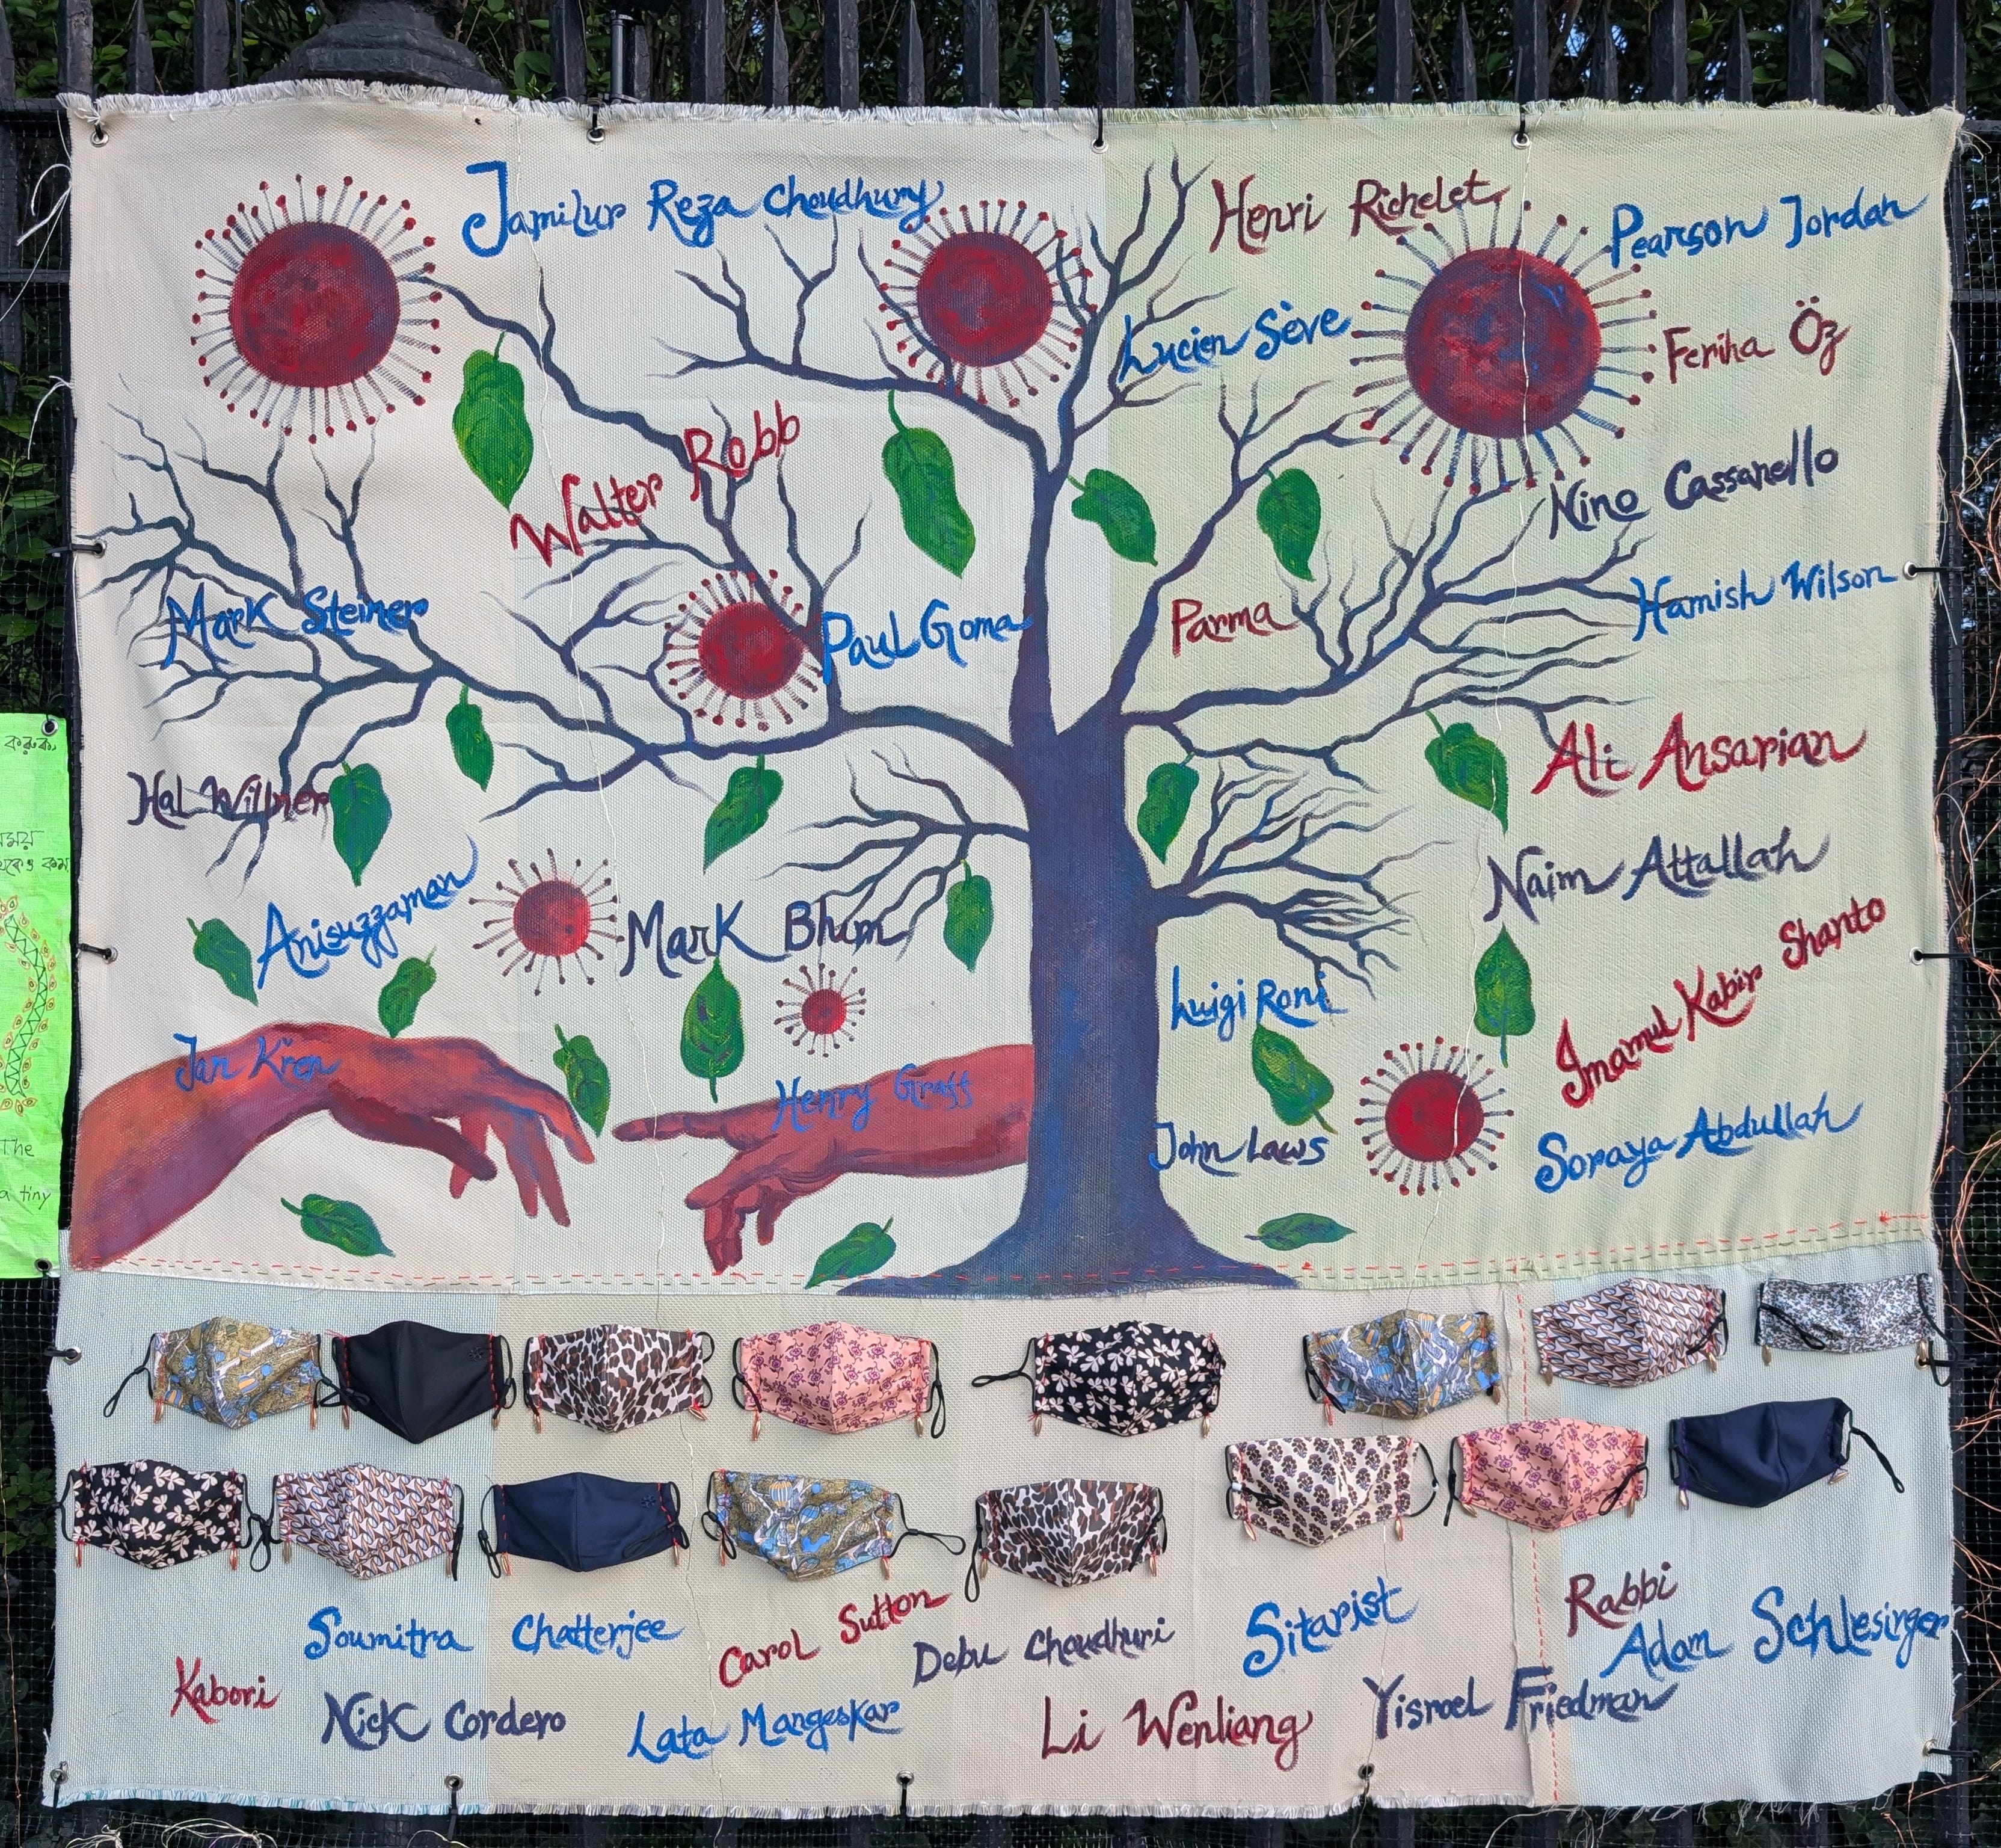 Jamilur Reza Choudhury
Henri Richelet
Pearson Jordan
Lucien Sève
Feriha Öz
Walter Robb
Nino Cassanello
Mark Steiner
Paul Goma
Parma
Hamish Wilson
Ali Ansarian
Hal Willner
Naim Attallah
Anisuzzaman
Mark Blum
Imamul Kabir Shanto
Luigi Roni
Jan Křen
Henry Graff
John Laws
Soraya Abdullah
The
a tiny
Soumitra Chatterjee
Carol Sutton
Debu Choudhuri
Sitarist
Rabbi
Adam Schlesinger
Kabori
Nick Cordero
Lata Mangeskar
Li Wenliang
Yisroel Friedman